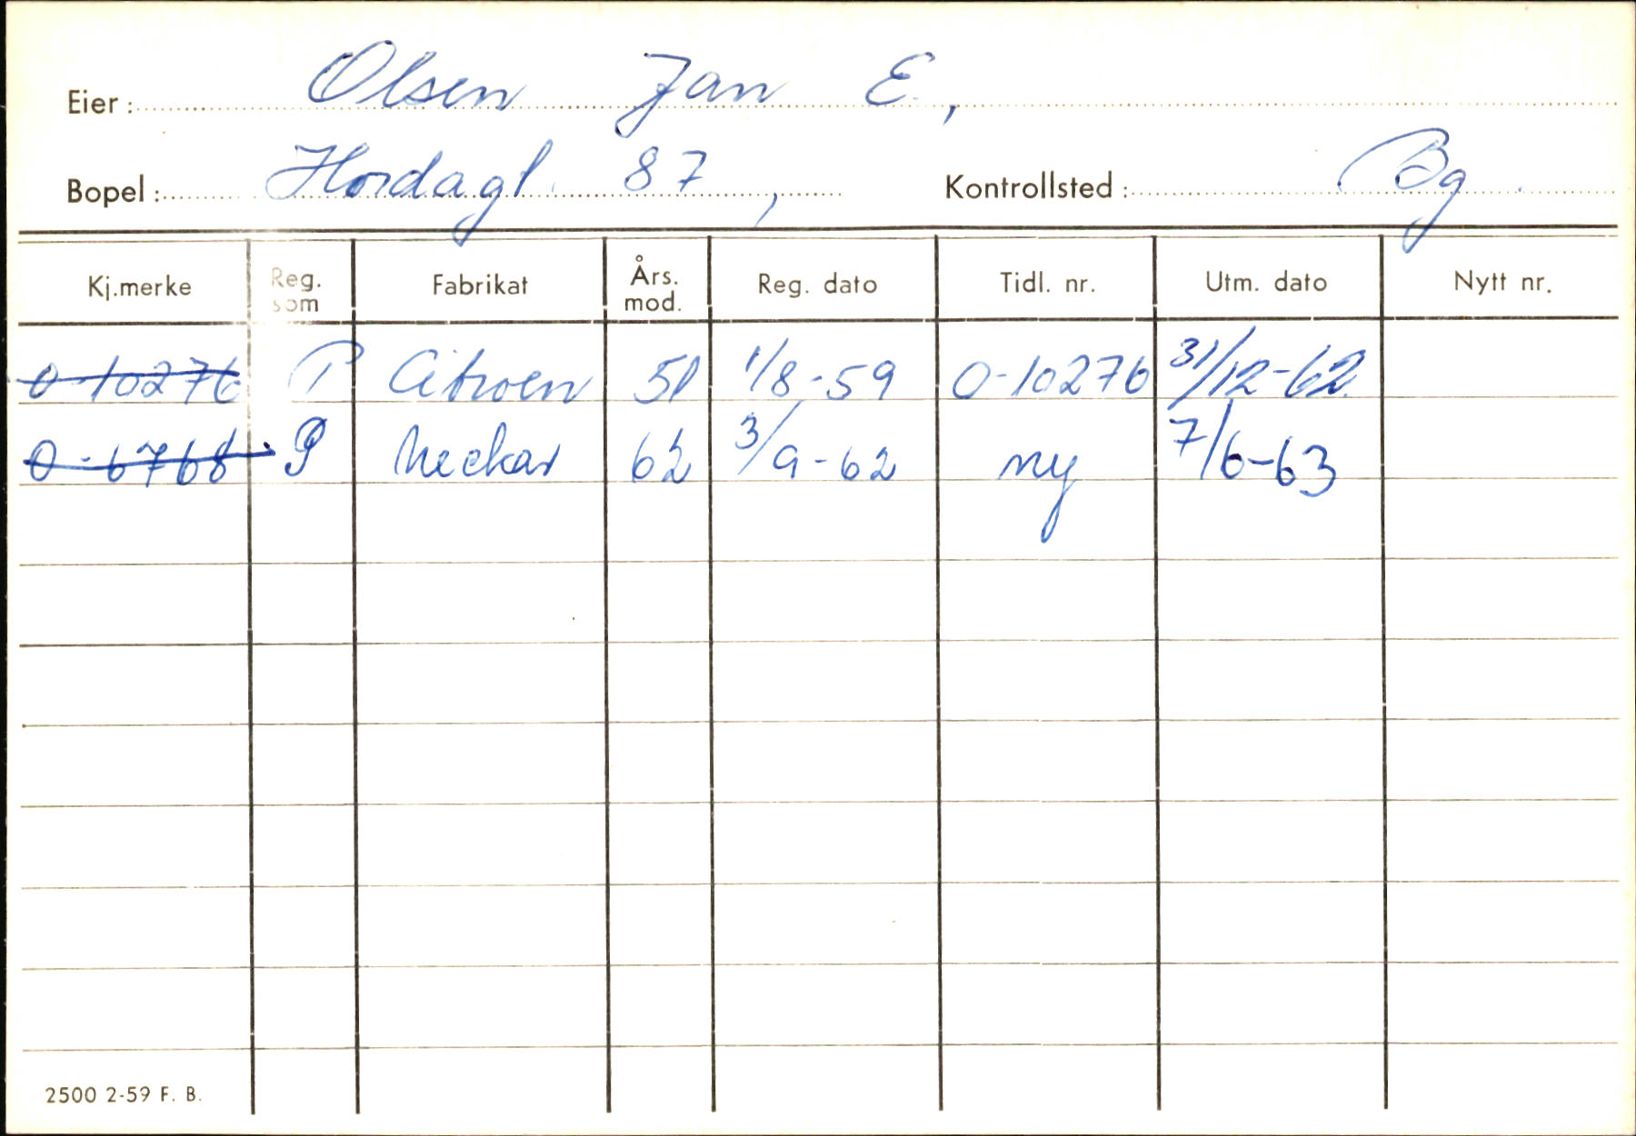 Eier: Olsen Jan E.,
Bopel: Hordagt. 87, Kontrollsted: Bg.
Kj.merke Reg. som Fabrikat Års. mod. Reg. dato Tidl. nr. Utm. dato Nytt nr.
O-10276 P Citroen 51 1/8-59 O-10276 31/12-62
O-6768 P Neckar 62 3/9-62 ny 7/6-63
2500 2-59 F. B.